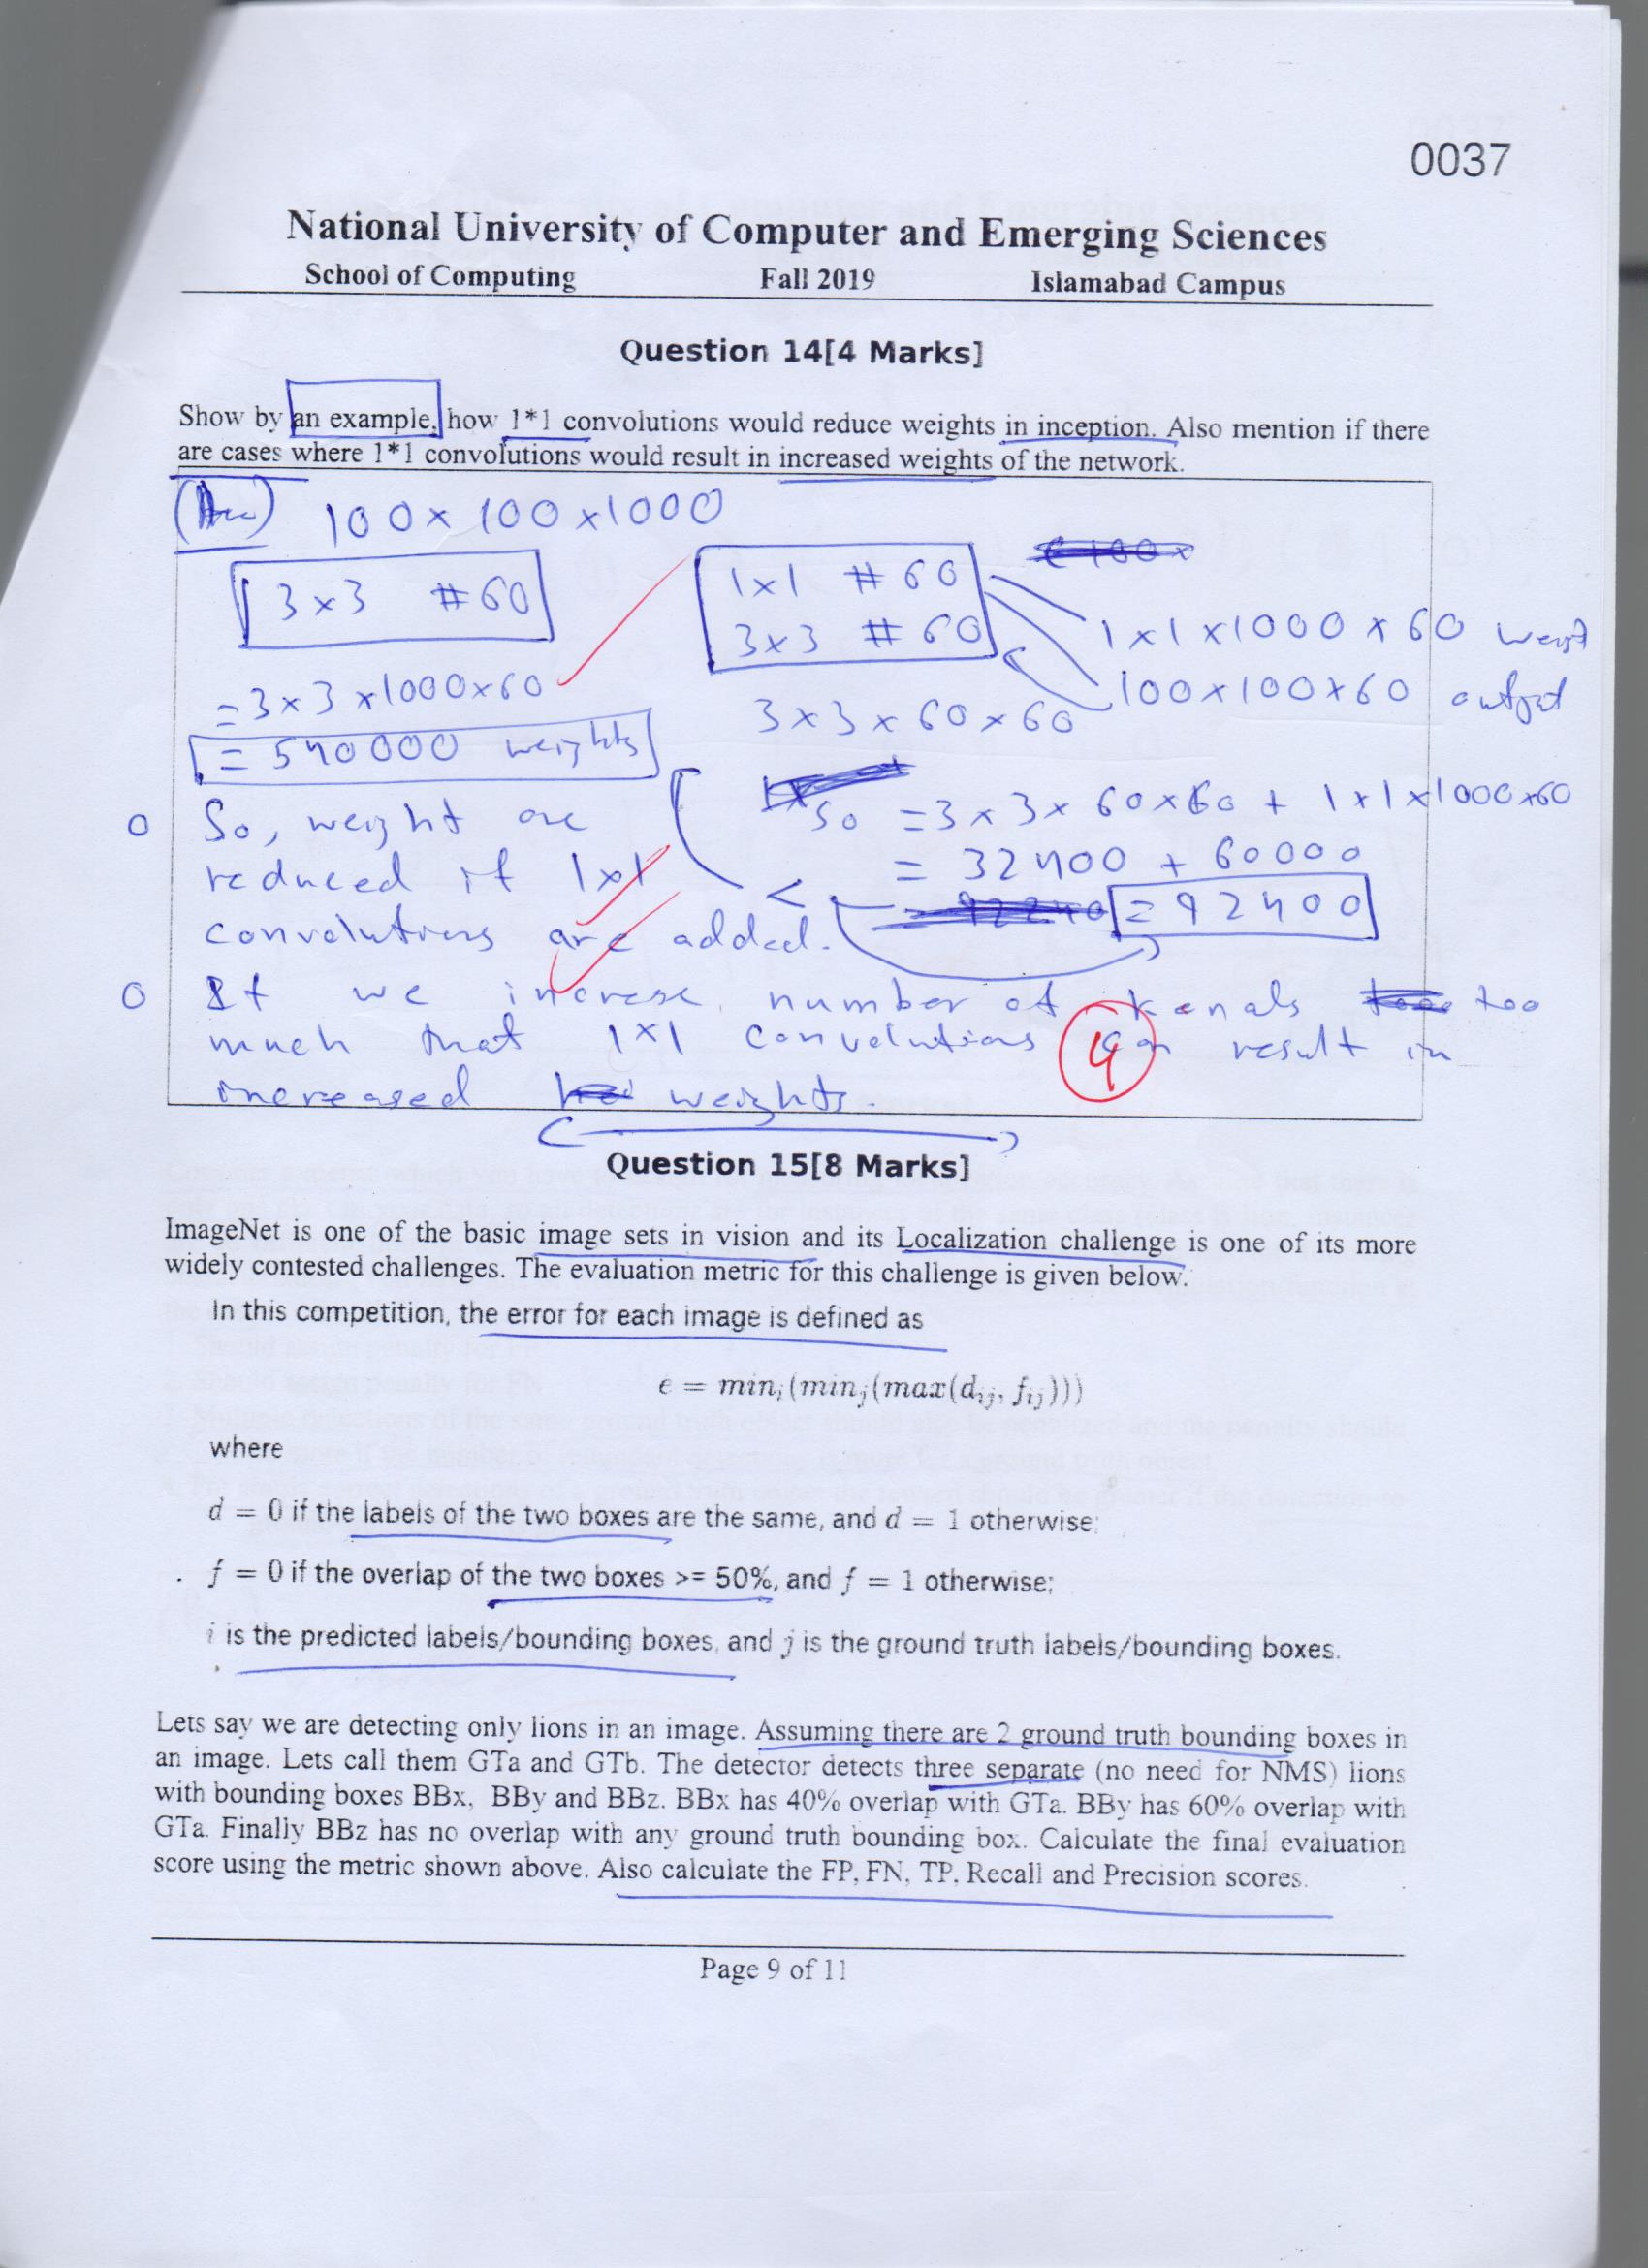 0037
National University of Computer and Emerging Sciences
School of Computing Fall 2019 Islamabad Campus
Question 14[4 Marks]
Show by an example, how 1*1 convolutions would reduce weights in inception. Also mention if there
are cases where 1*1 convolutions would result in increased weights of the network.
100 x 100 x 1000
3 x 3 # 60
1x1 # 60
3x3 # 60
1 x 1 x 1000 x 60
100 x 100 x 60 output
= 3 x 3 x 1000 x 60
= 540000 weights
3 x 3 x 60 x 60
So = 3 x 3 x 60 x 60 + 1 x 1 x 1000 x 60
= 32400 + 60000
< = 92400
o So, weight are
reduced if 1x1
convolutions are added.
o If we increase number of kenals too
much that 1x1 convolutions can result in
increased weights.
4
Question 15[8 Marks]
ImageNet is one of the basic image sets in vision and its Localization challenge is one of its more
widely contested challenges. The evaluation metric for this challenge is given below.
In this competition, the error for each image is defined as
e = min_i(min_j(max(d_ij, f_ij)))
where
d = 0 if the labels of the two boxes are the same, and d = 1 otherwise;
f = 0 if the overlap of the two boxes >= 50%, and f = 1 otherwise;
i is the predicted labels/bounding boxes, and j is the ground truth labels/bounding boxes.
Lets say we are detecting only lions in an image. Assuming there are 2 ground truth bounding boxes in
an image. Lets call them GTa and GTb. The detector detects three separate (no need for NMS) lions
with bounding boxes BBx, BBy and BBz. BBx has 40% overlap with GTa. BBy has 60% overlap with
GTa. Finally BBz has no overlap with any ground truth bounding box. Calculate the final evaluation
score using the metric shown above. Also calculate the FP, FN, TP, Recall and Precision scores.
Page 9 of 11